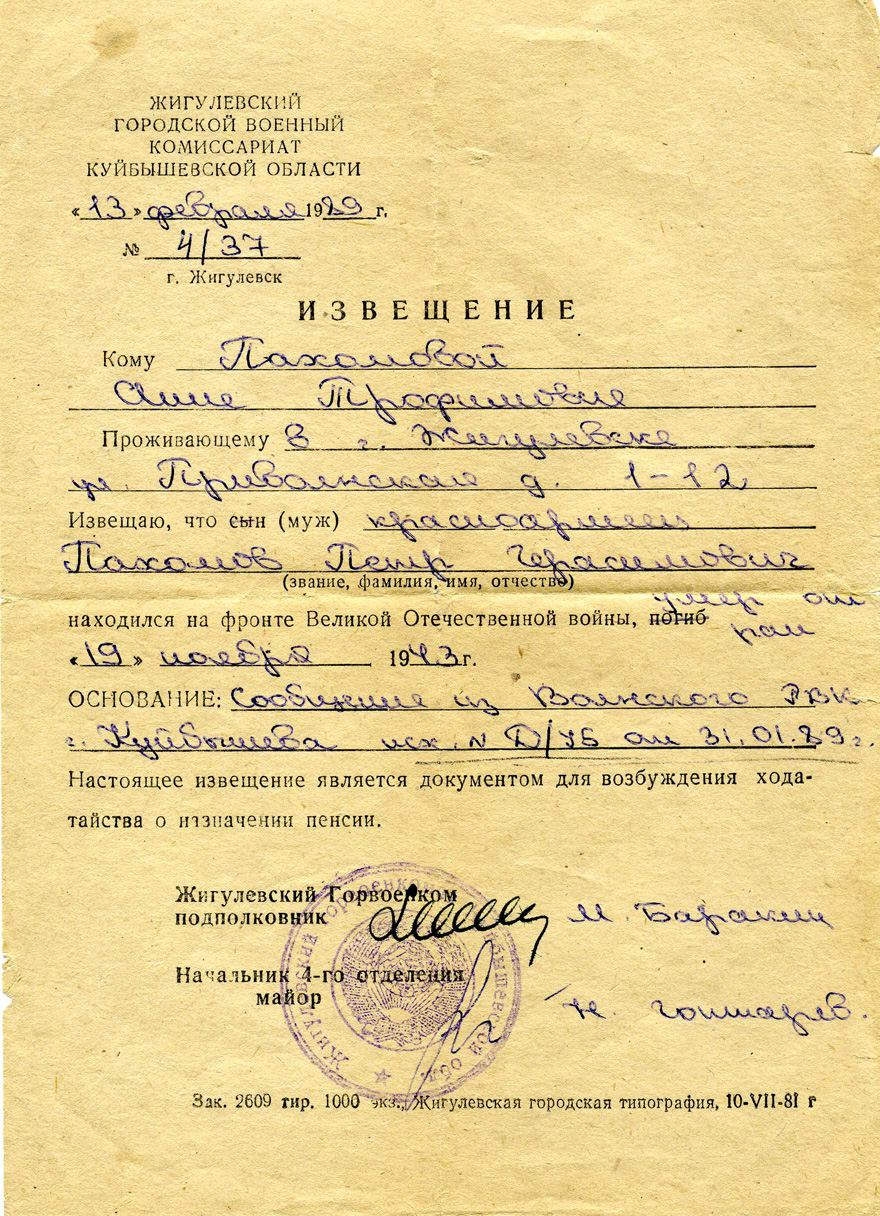 ЖИГУЛЕВСКИЙ
ГОРОДСКОЙ ВОЕННЫЙ
КОМИССАРИАТ
КУЙБЫШЕВСКОЙ ОБЛАСТИ
«13» февраля 1989 г.
№ 4/37
г. Жигулевск
ИЗВЕЩЕНИЕ
Кому Пахомовой
Анне Трофимовне
Проживающему в г. Жигулевске
ул. Приволжская д. 1-12
Извещаю, что сын (муж) красноармеец
Пахомов Петр Герасимович
(звание, фамилия, имя, отчество)
умер от
находился на фронте Великой Отечественной войны, погиб ран
«19» ноября 1943 г.
ОСНОВАНИЕ: Сообщение из Волжского РВК
г. Куйбышева исх. N D/УБ от 31.01.89 г.
Настоящее извещение является документом для возбуждения хода-
тайства о назначении пенсии.
Жигулевский Горвоенком
подполковник М. Баракин
Начальник 4-го отделения
майор
Жигулевский горвоенком Куйбышевской обл.
Зак. 2609 тир. 1000 экз., Жигулевская городская типография, 10-VII-81 г